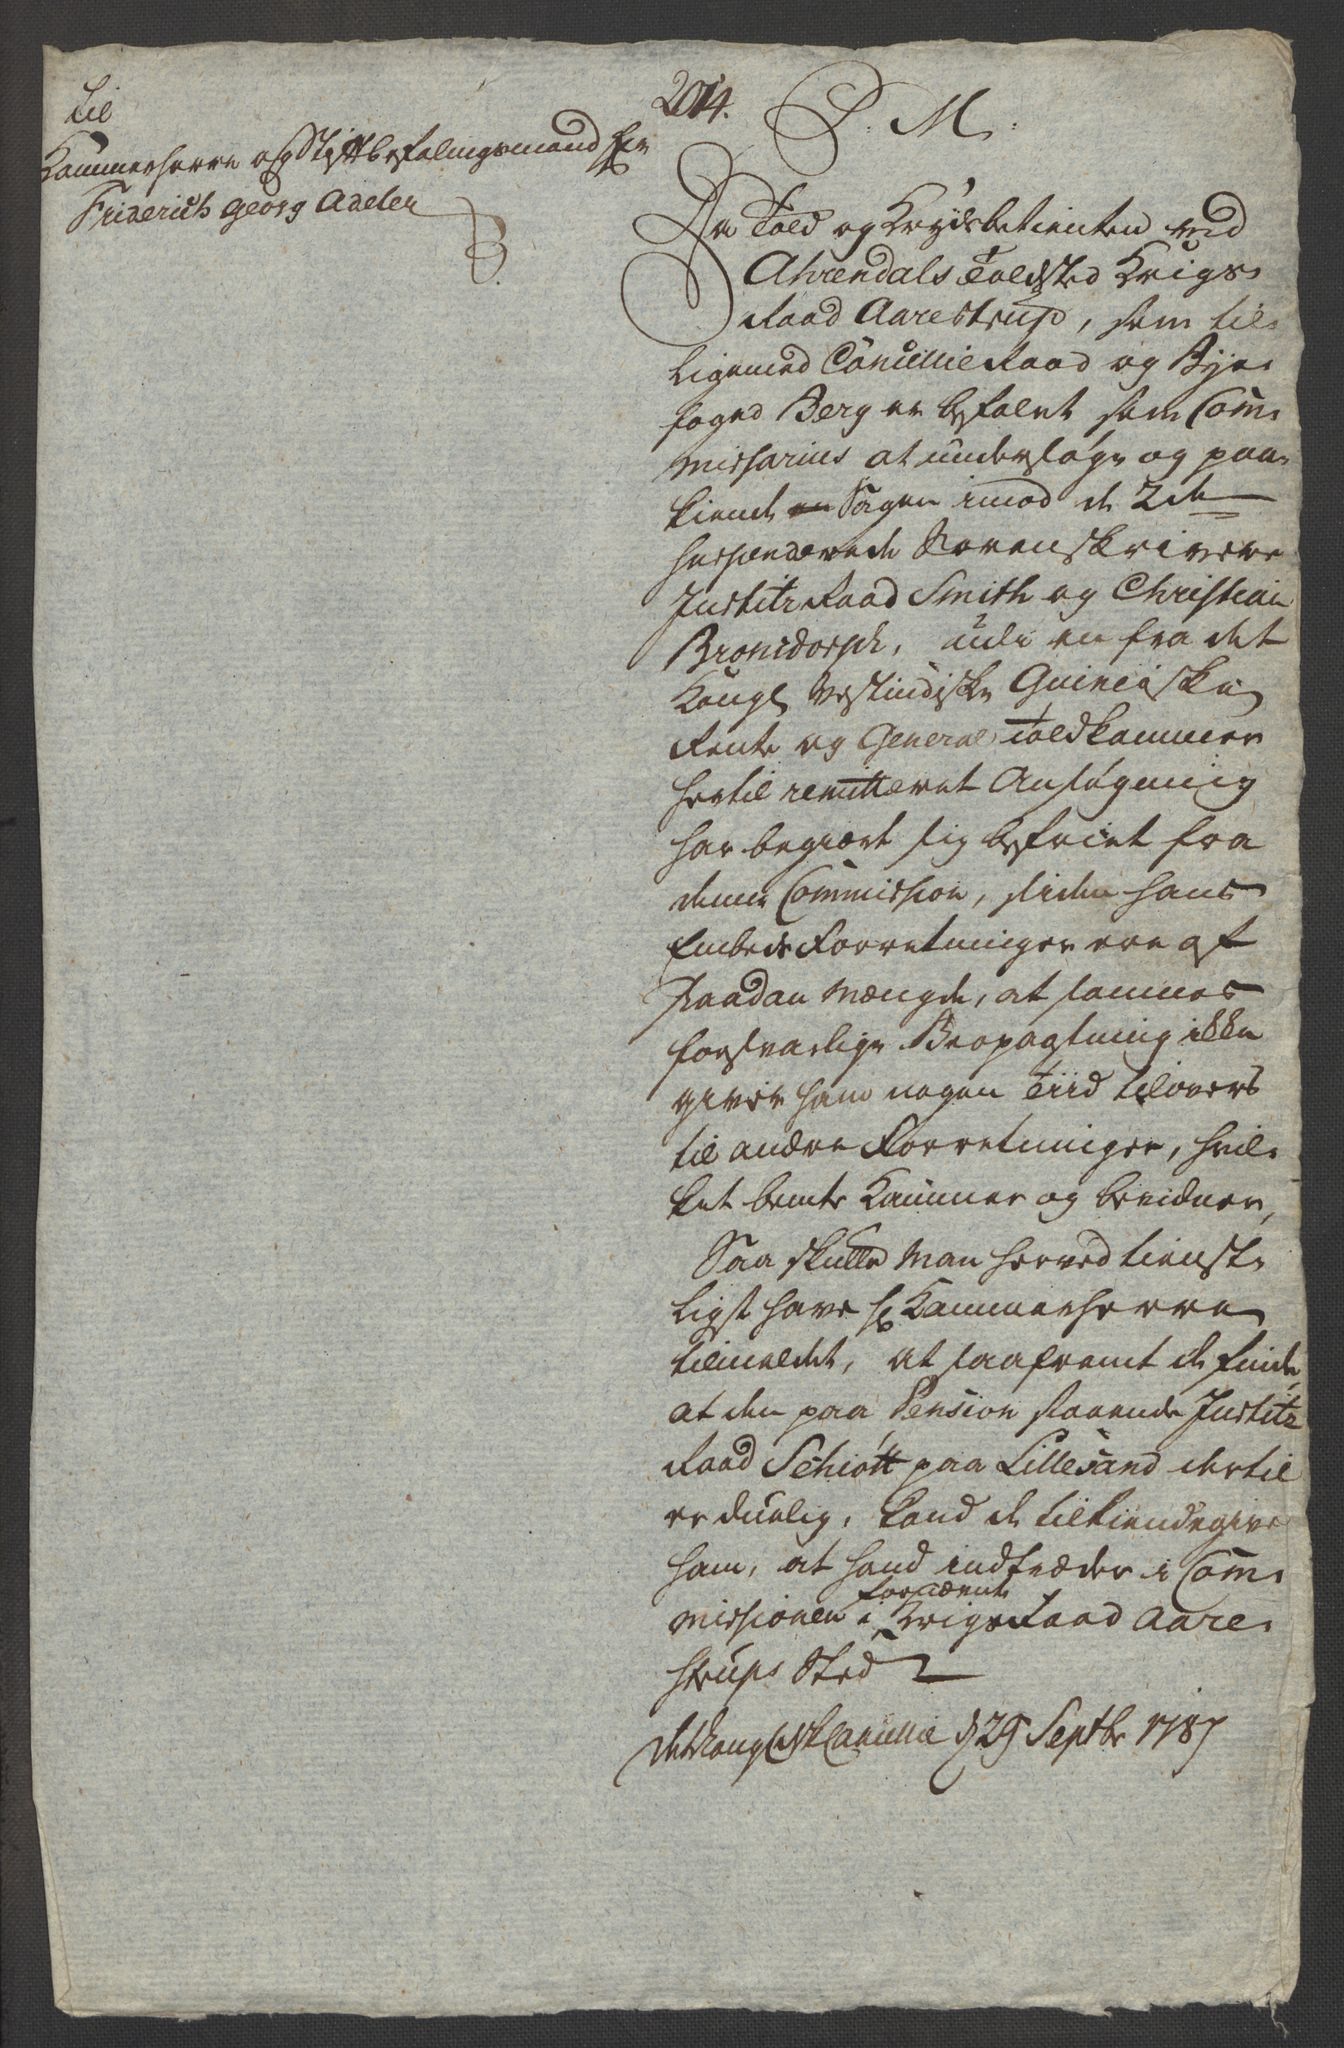 Til
Kammerherre og Stiftbefalingsmand Hr
Friderich Georg Adeler
2014.
P. M.
Da Told og Krydsbetienten ved
Ahrendals Toldsted Krigs-
Raad Aarestrup, som til-
ligemed Cancellie Raad og Bye-
foged Berg er befalet som Com-
missarius at undersøge og paa-
kiende Sagen imod de 2de
suspenderede Sorenskrivere
Justitz Raad Smith og Christian
Bronsdorph, udi en fra det
Kongl Vestindiske Guineiske
Rente og General Toldkammer
hertil remitteret Ansøgning
har begiært sig befriet fra
denne Commission, siden hans
Embeds Forretninger ere af
saadan Mængde, at sammes
forsvarlige Beopagtning ikke
giver ham nogen Tiid tilovers
til andre Forretninger, hvil-
ket bemte Kammer og bevidner,
Saa skulle man herved tienst-
ligst have Hr Kammerherre
tilmeldet, at saafremt De finde,
at den paa Pension staaende Justitz
Raad Schiøtt paa Lillesand dertil
er duelig, kand De tilkiendegive
ham, at hand indtræder i Com-
missionen i forrævnte Krigs Raad Aare-
strups Sted
Det Kongl Dsk Cancellie d 29 Septbr 1787